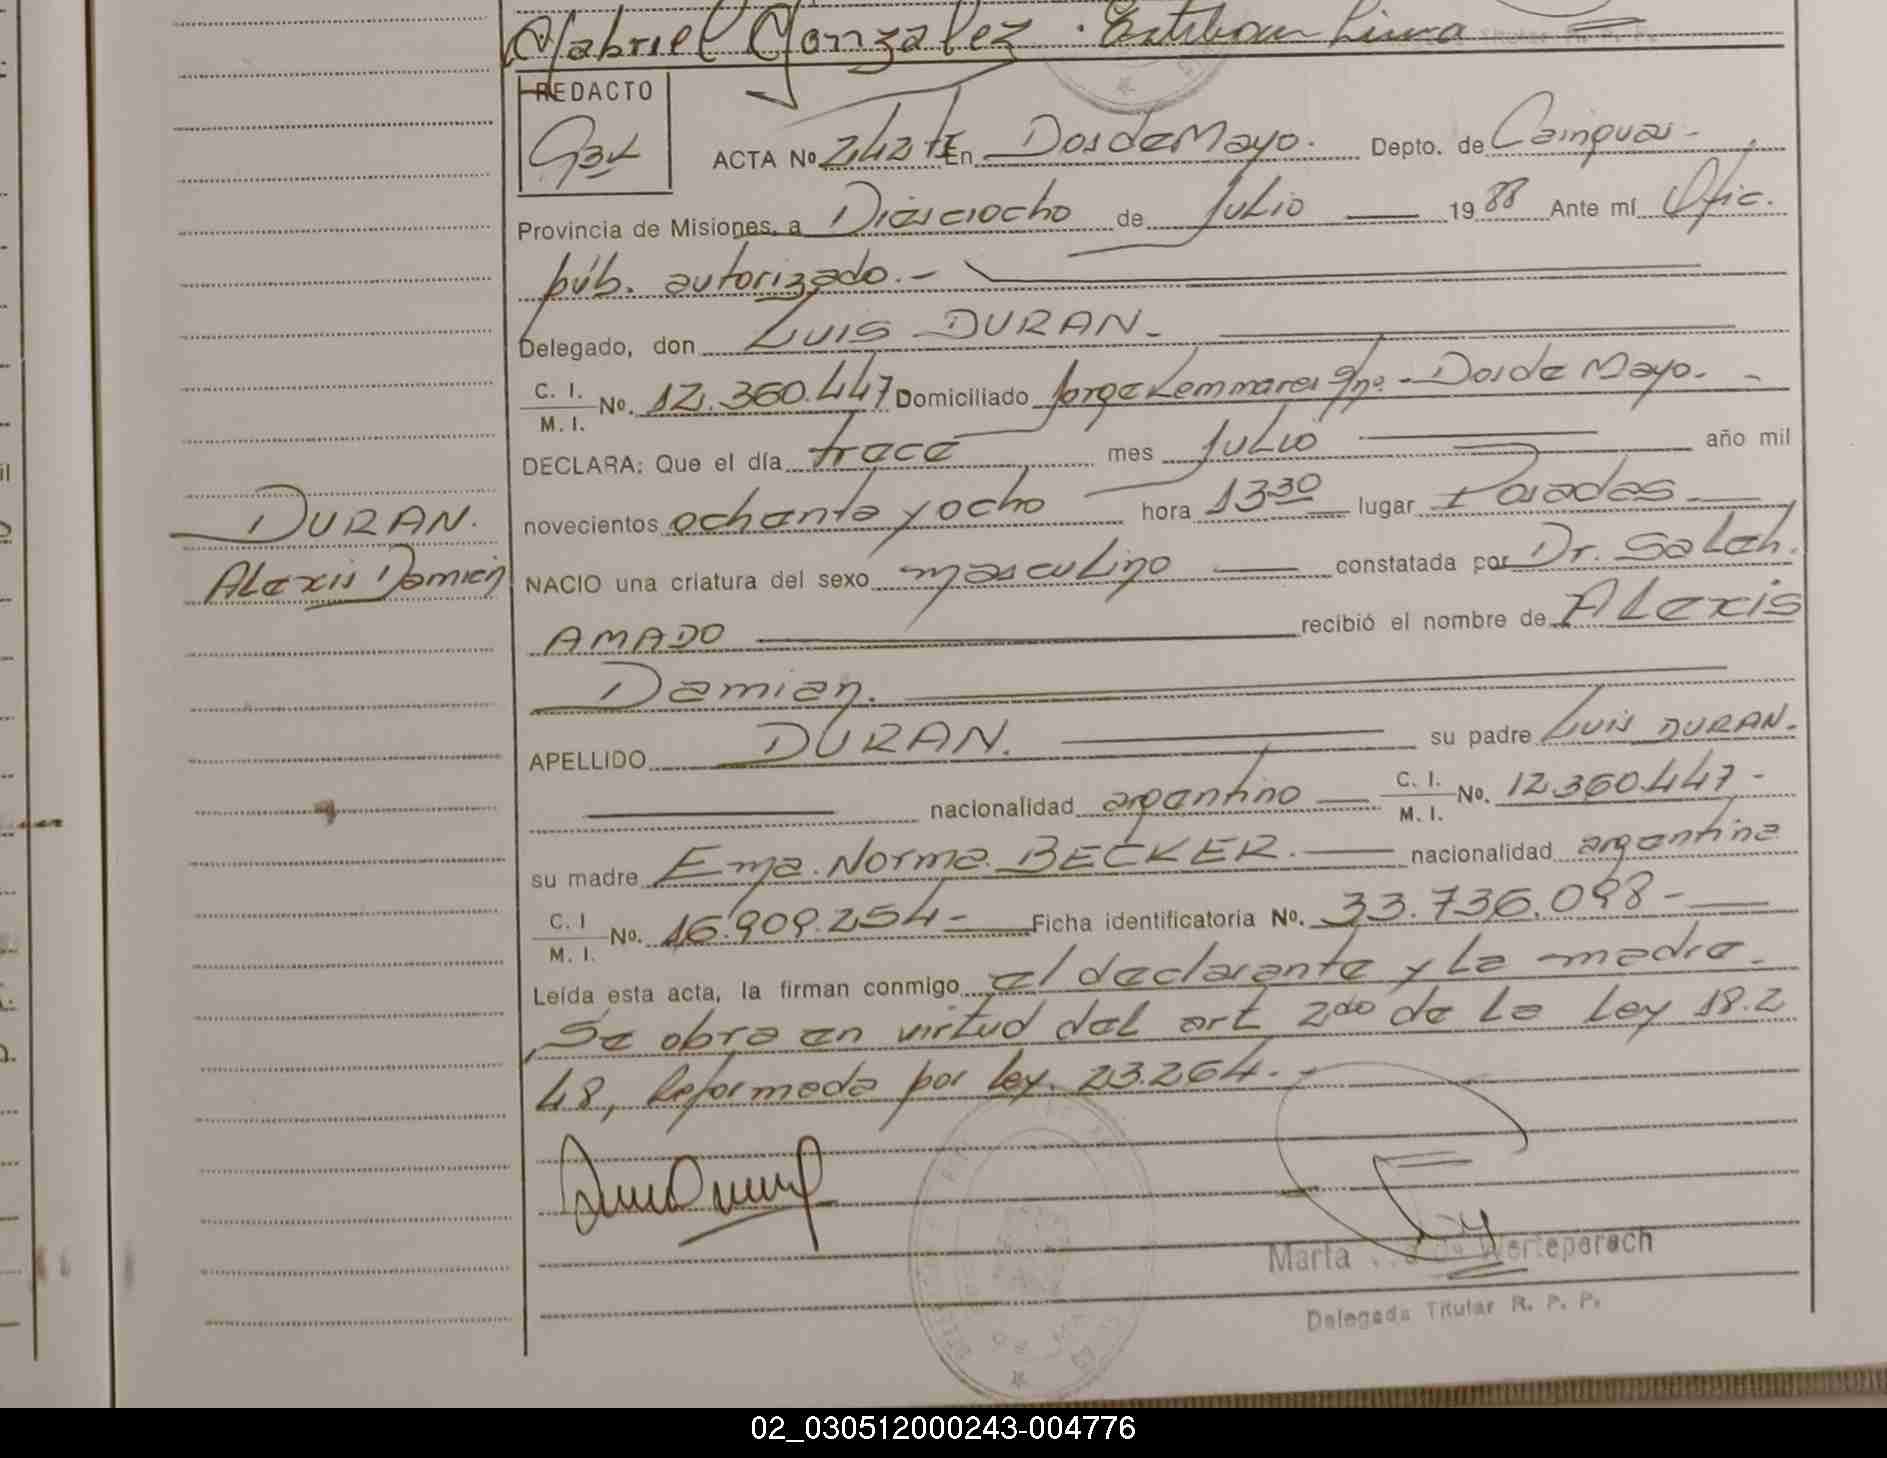 Gabriel Gonzalez. Esteban Lima
REDACTO
ACTA Nº 242 tI En Dos de Mayo. Depto. de Cainguas -
Provincia de Misiones, a Dieciocho de Julio 1988 Ante mí Ofic.
púb. autorizado. -
Delegado, don LUIS DURAN. -
C. I. / M. I. No. 12.360.447 Domiciliado Jorge Lemmarei s/nº. - Dos de Mayo. -
DECLARA: Que el día trece mes Julio año mil
novecientos ochenta y ocho hora 13 30 lugar Posadas
DURAN.
Alexis Damien
NACIO una criatura del sexo masculino constatada por Dr. Saleh.
AMADO recibió el nombre de Alexis
Damian.
APELLIDO DURAN. su padre LUIS DURAN.
nacionalidad argentino C. I. / M. I. No. 12.360.447 -
su madre Ema. Norma BECKER. nacionalidad argentina
C. I / M. I. No. 16.909.254 - Ficha identificatoria No. 33.736.098 -
Leída esta acta, la firman conmigo el declarante y la madre.
Se obra en virtud del art 2do de la Ley 18.2
48, Reformada por ley. 23.264. -
Marta Werteperech
Delegada Titular R. P. P.
02_030512000243-004776